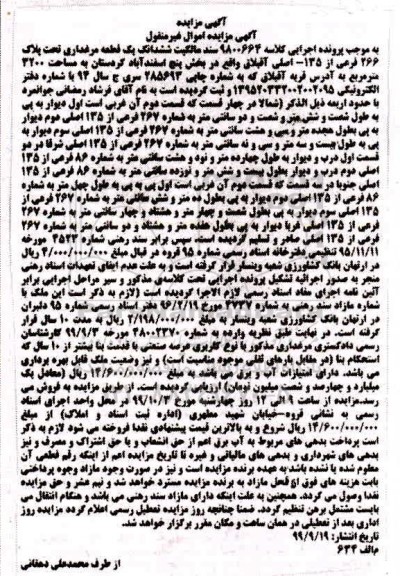 آگهی مزایده
آگهی مزایده اموال غیرمنقول
به موجب پرونده اجرایی کلاسه ۹۸۰۰۶۶۴ سند مالکیت ششدانگ یک قطعه مرغداری تحت پلاک
۲۶۶ فرعی از ۱۳۵- اصلی آقبلاق واقع در بخش پنج اسفندآباد کردستان به مساحت ۳۲۰۰
مترمربع به آدرس قریه آقبلاق که به شماره چاپی ۲۸۵۶۹۳ سری ج سال ۹۳ با شماره دفتر
الکترونیکی ۱۳۹۵۲۰۳۳۲۰۰۲۰۰۲۰۹۵ ثبت گردیده است به نام آقای فرشاد رمضانی جوانمرد
با حدود اربعه ذیل الذکر (شمالا در چهار قسمت که قسمت دوم آن غربی است اول دیوار به پی
به طول شصت و شش متر و شصت و دو سانتی متر به شماره ۲۶۷ فرعی از ۱۳۵ اصلی دوم دیوار
به پی بطول هجده متر و سی و هشت سانتی متر به شماره ۲۶۷ فرعی از ۱۳۵ اصلی سوم دیوار به
پی به طول بیست و سه متر و سی و نه سانتی متر به شماره ۲۶۷ فرعی از ۱۳۵ اصلی شرقا در دو
قسمت اول درب و دیوار به طول چهارده متر و نود و هشت سانتی متر به شماره ۸۶ فرعی از ۱۳۵
اصلی دوم درب و دیوار بطول بیست و شش متر و نوزده سانتی متر به شماره ۸۶ فرعی از ۱۳۵
اصلی جنوبا در سه قسمت که قسمت دوم آن غربی است اول پی به پی به طول چهل متر به شماره
۸۶ فرعی از ۱۳۵ اصلی دوم پی به پی به طول ده متر و شش سانتی متر به شماره ۲۶۷ فرعی از
۱۳۵ اصلی سوم دیوار به پی بطول شصت و چهار متر و هشتاد و چهار سانتی متر به شماره ۲۶۷
فرعی از ۱۳۵ اصلی غربا دیوار به پی بطول هفده متر و هشتاد و دو سانتی متر به شماره ۲۶۷
فرعی از ۱۳۵ اصلی صادر و تسلیم گردیده است. سپس برابر سند رهنی شماره ۴۵۲۳ مورخه
۹۵/۱۱/۱۱ تنظیمی دفترخانه اسناد رسمی شماره ۹۵ قروه در قبال مبلغ ۴/۰۰۰/۰۰۰/۰۰۰ ریال
در ارتهان بانک کشاورزی شعبه وینسار قرار گرفته است و به علت عدم ایفای تعهدات اسناد رهنی
منجر به صدور اجرائیه تشکیل پرونده اجرایی تحت کلاسه‌ی مذکور و سیر مراحل اجرایی برابر
آئین نامه اجرای مفاد اسناد رسمی لازم الاجرا گردیده است (لازم به ذکر است این ملک با
شماره مازاد سند رهنی به شماره ۴۷۳۷ مورخ ۹۶/۴/۱۹ دفتر اسناد رسمی شماره ۹۵ دلبران
در ارتهان بانک کشاورزی شعبه وینسار به مبلغ ۲/۱۹۸/۰۰۰/۰۰۰ ریال به مدت ۱۰ سال قرار
گرفته است. در نهایت طبق نظریه وارده به شماره ۴۸۰۰۲۳۷۰ مورخ ۹۹/۹/۳ کارشناسان
رسمی دادگستری مرغداری مذکور با نوع کاربری عرصه صنعتی با قدمت بنا بیشتر از ۱۰ سال که
استحکام بنا (در مقابل بارهای ثقلی موجود مناسبت است) و نیز وضعیت ملک قابل بهره برداری
می باشد. دارای امتیازات آب و برق می باشد به مبلغ ۱۴/۶۰۰/۰۰۰/۰۰۰ ریال (معادل یک
میلیارد و چهارصد و شصت میلیون تومان) ارزیابی گردیده است. از طریق مزایده به فروش می
رسد.مزایده از ساعت ۹ الی ۱۲ روز چهارشنبه مورخ ۹۹/۱۰/۳ در محل واحد اجرای اسناد
رسمی به نشانی قروه-خیابان شهید مطهری (اداره ثبت اسناد و املاک) از مبلغ
۱۴/۶۰۰/۰۰۰/۰۰۰ ریال شروع و به بالاترین قیمت پیشنهادی نقدا فروخته می شود لازم به ذکر
است پرداخت بدهی های مربوط به آب برق اعم از حق انشعاب و یا حق اشتراک و مصرف و نیز
بدهی های شهرداری و بدهی های مالیاتی و غیره تا تاریخ مزایده اعم از اینکه رقم قطعی آن
معلوم شده یا نشده باشد به عهده برنده مزایده است و نیز در صورت وجود مازاد وجوه پرداختی
بابت هزینه های فوق از محل مازاد به برنده مزایده مسترد خواهد شد و نیم عشر و حق مزایده
نقدا وصول می گردد. همچنین به علت اینکه دارای مازاد سند رهنی می باشد و هنگام انتقال می
بایست مشتمل برهن تنظیم گردد. ضمنا چنانچه روز مزایده تعطیل رسمی اعلام گردد مزایده روز
اداری بعد از تعطیلی در همان ساعت و مکان مقرر برگزار خواهد شد.
تاریخ انتشار: ۹۹/۹/۱۹
م‌الف ۶۳۴
از طرف محمدعلی دهقانی